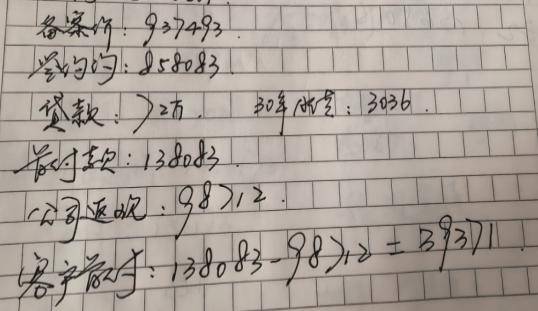 备案价：937493.
签约价：858083.
贷款：72万. 30年月供：3036.
首付款：138083.
公司返现：98712.
客户首付：138083-98712=39371.